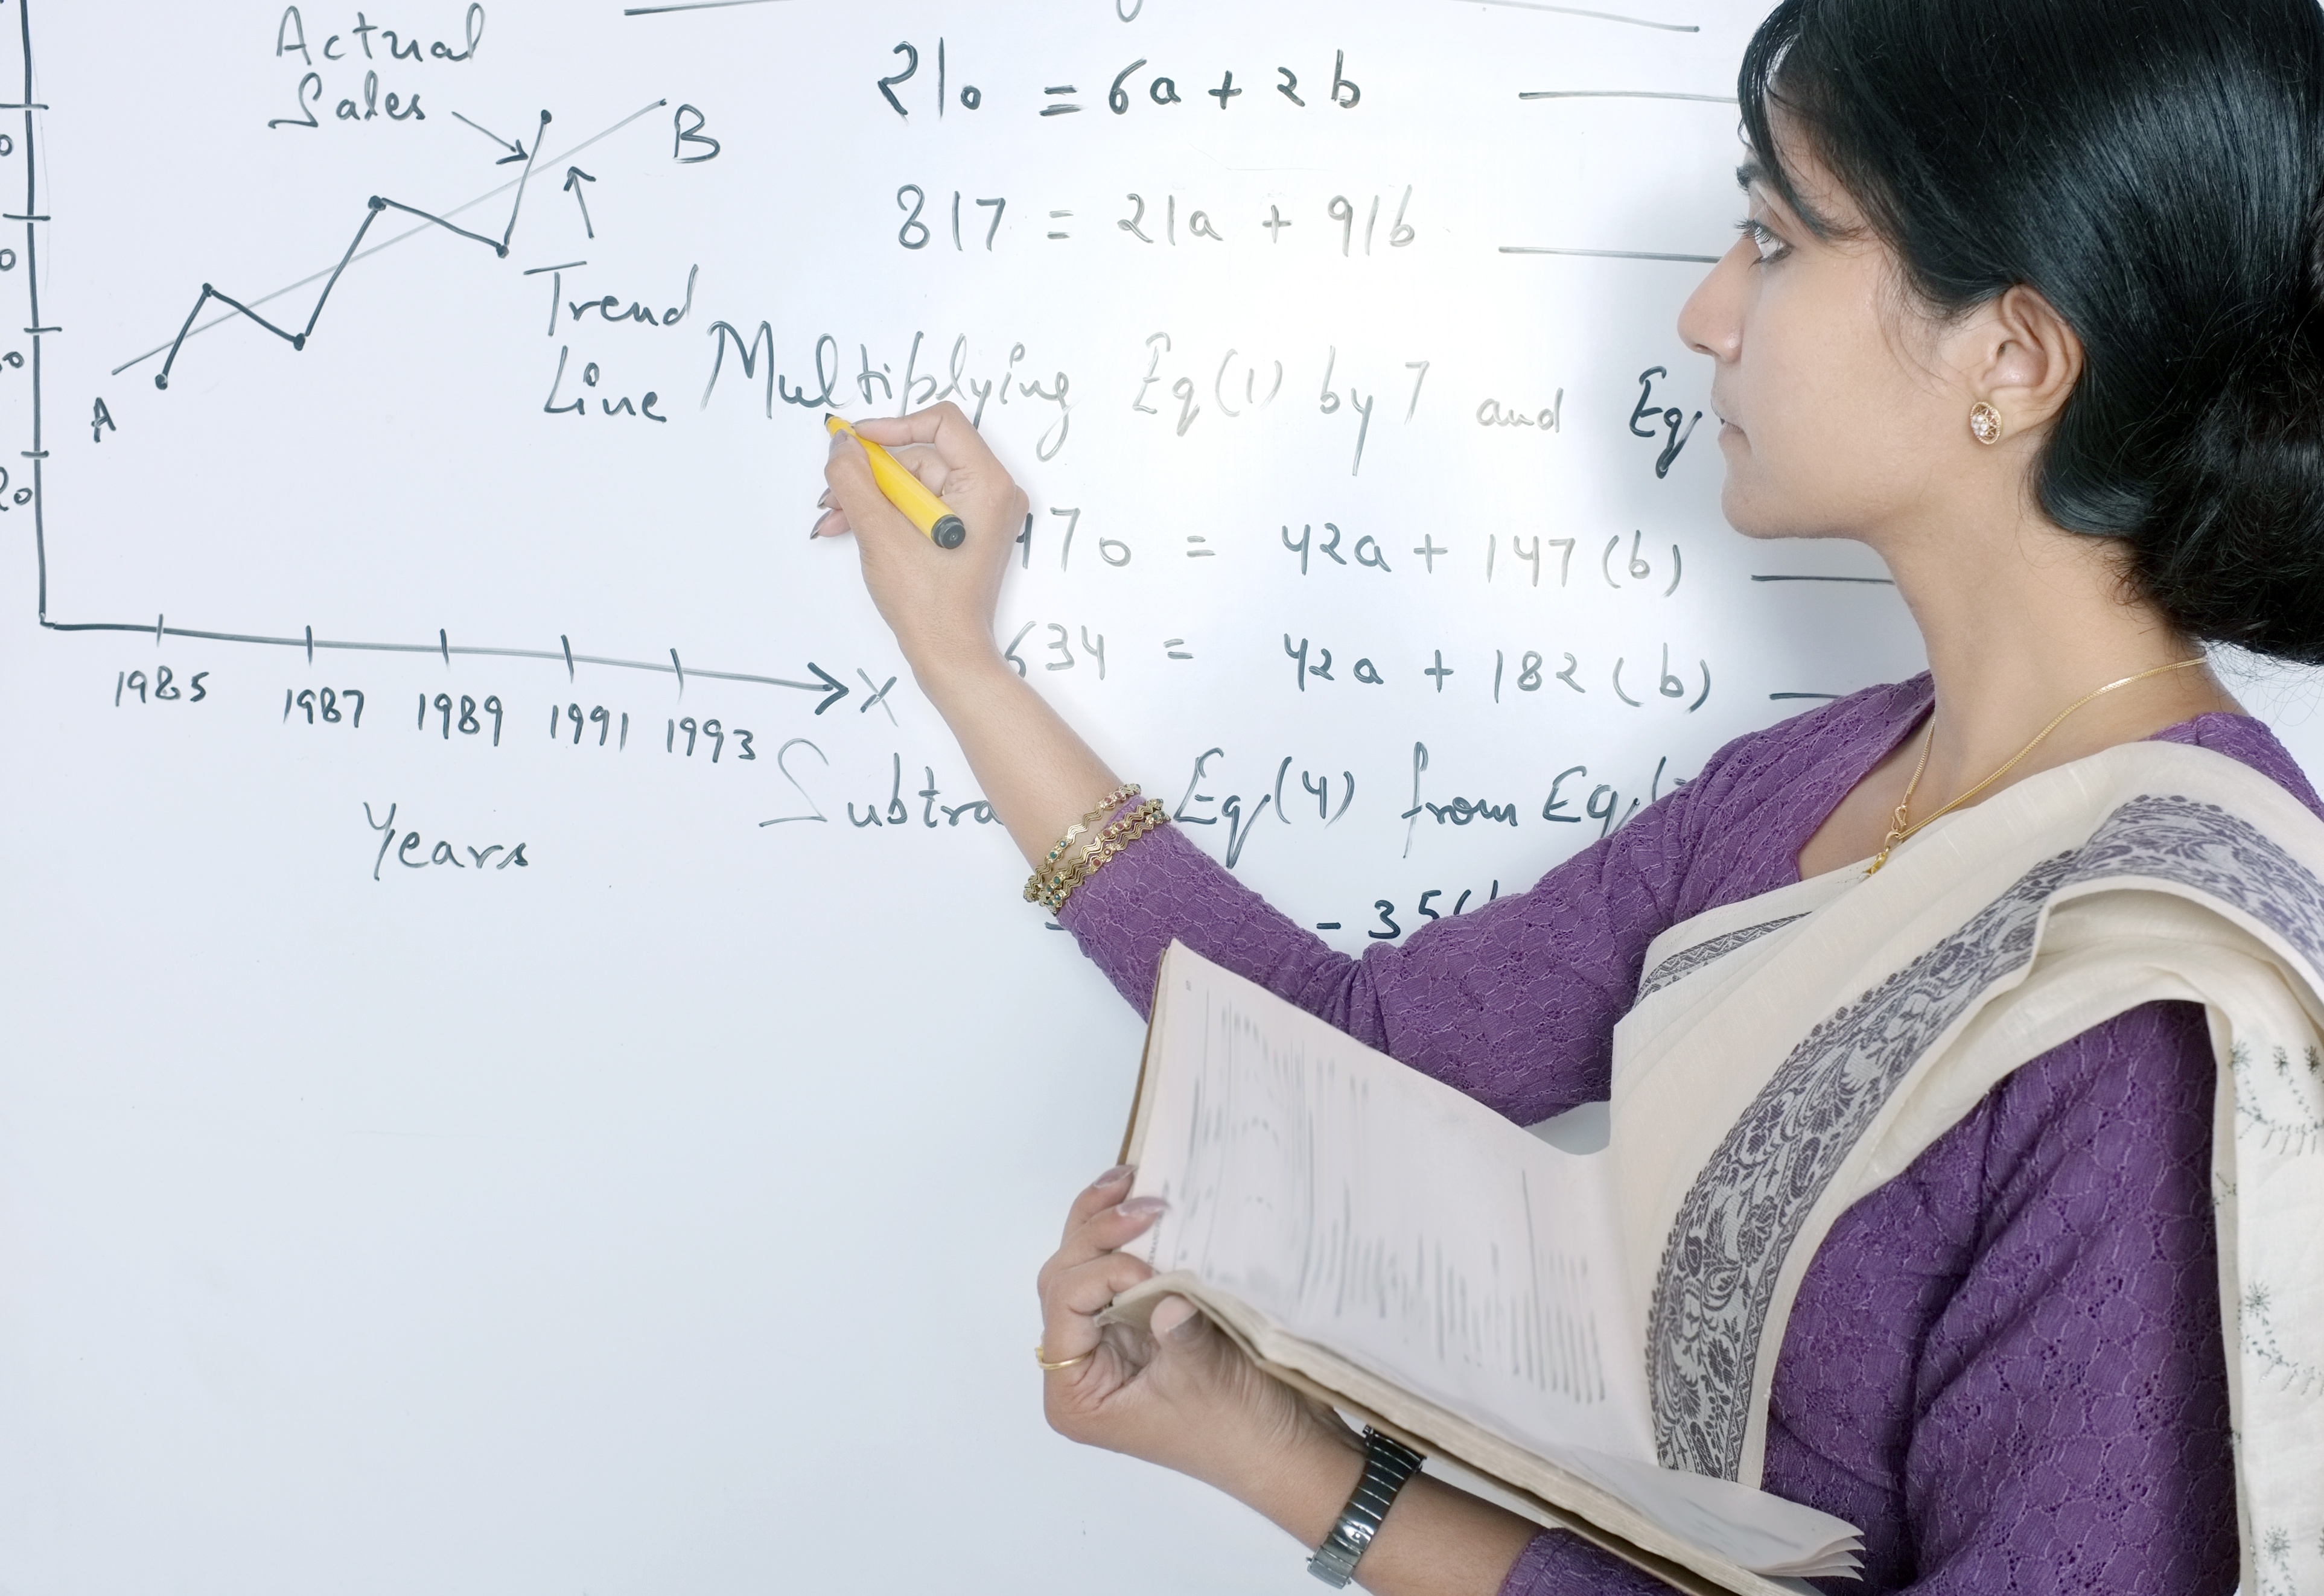 Actual
Sales
B
Trend
Line
A
20
1985
1987
1989
1991
1993
X
Years
210 = 6a + 2b
817 = 21a + 91b
Multiplying Eq(1) by 7 and Eq
170 = 42a + 147(b)
634 = 42a + 182(b)
Subtra Eq(4) from Eq
- 35(